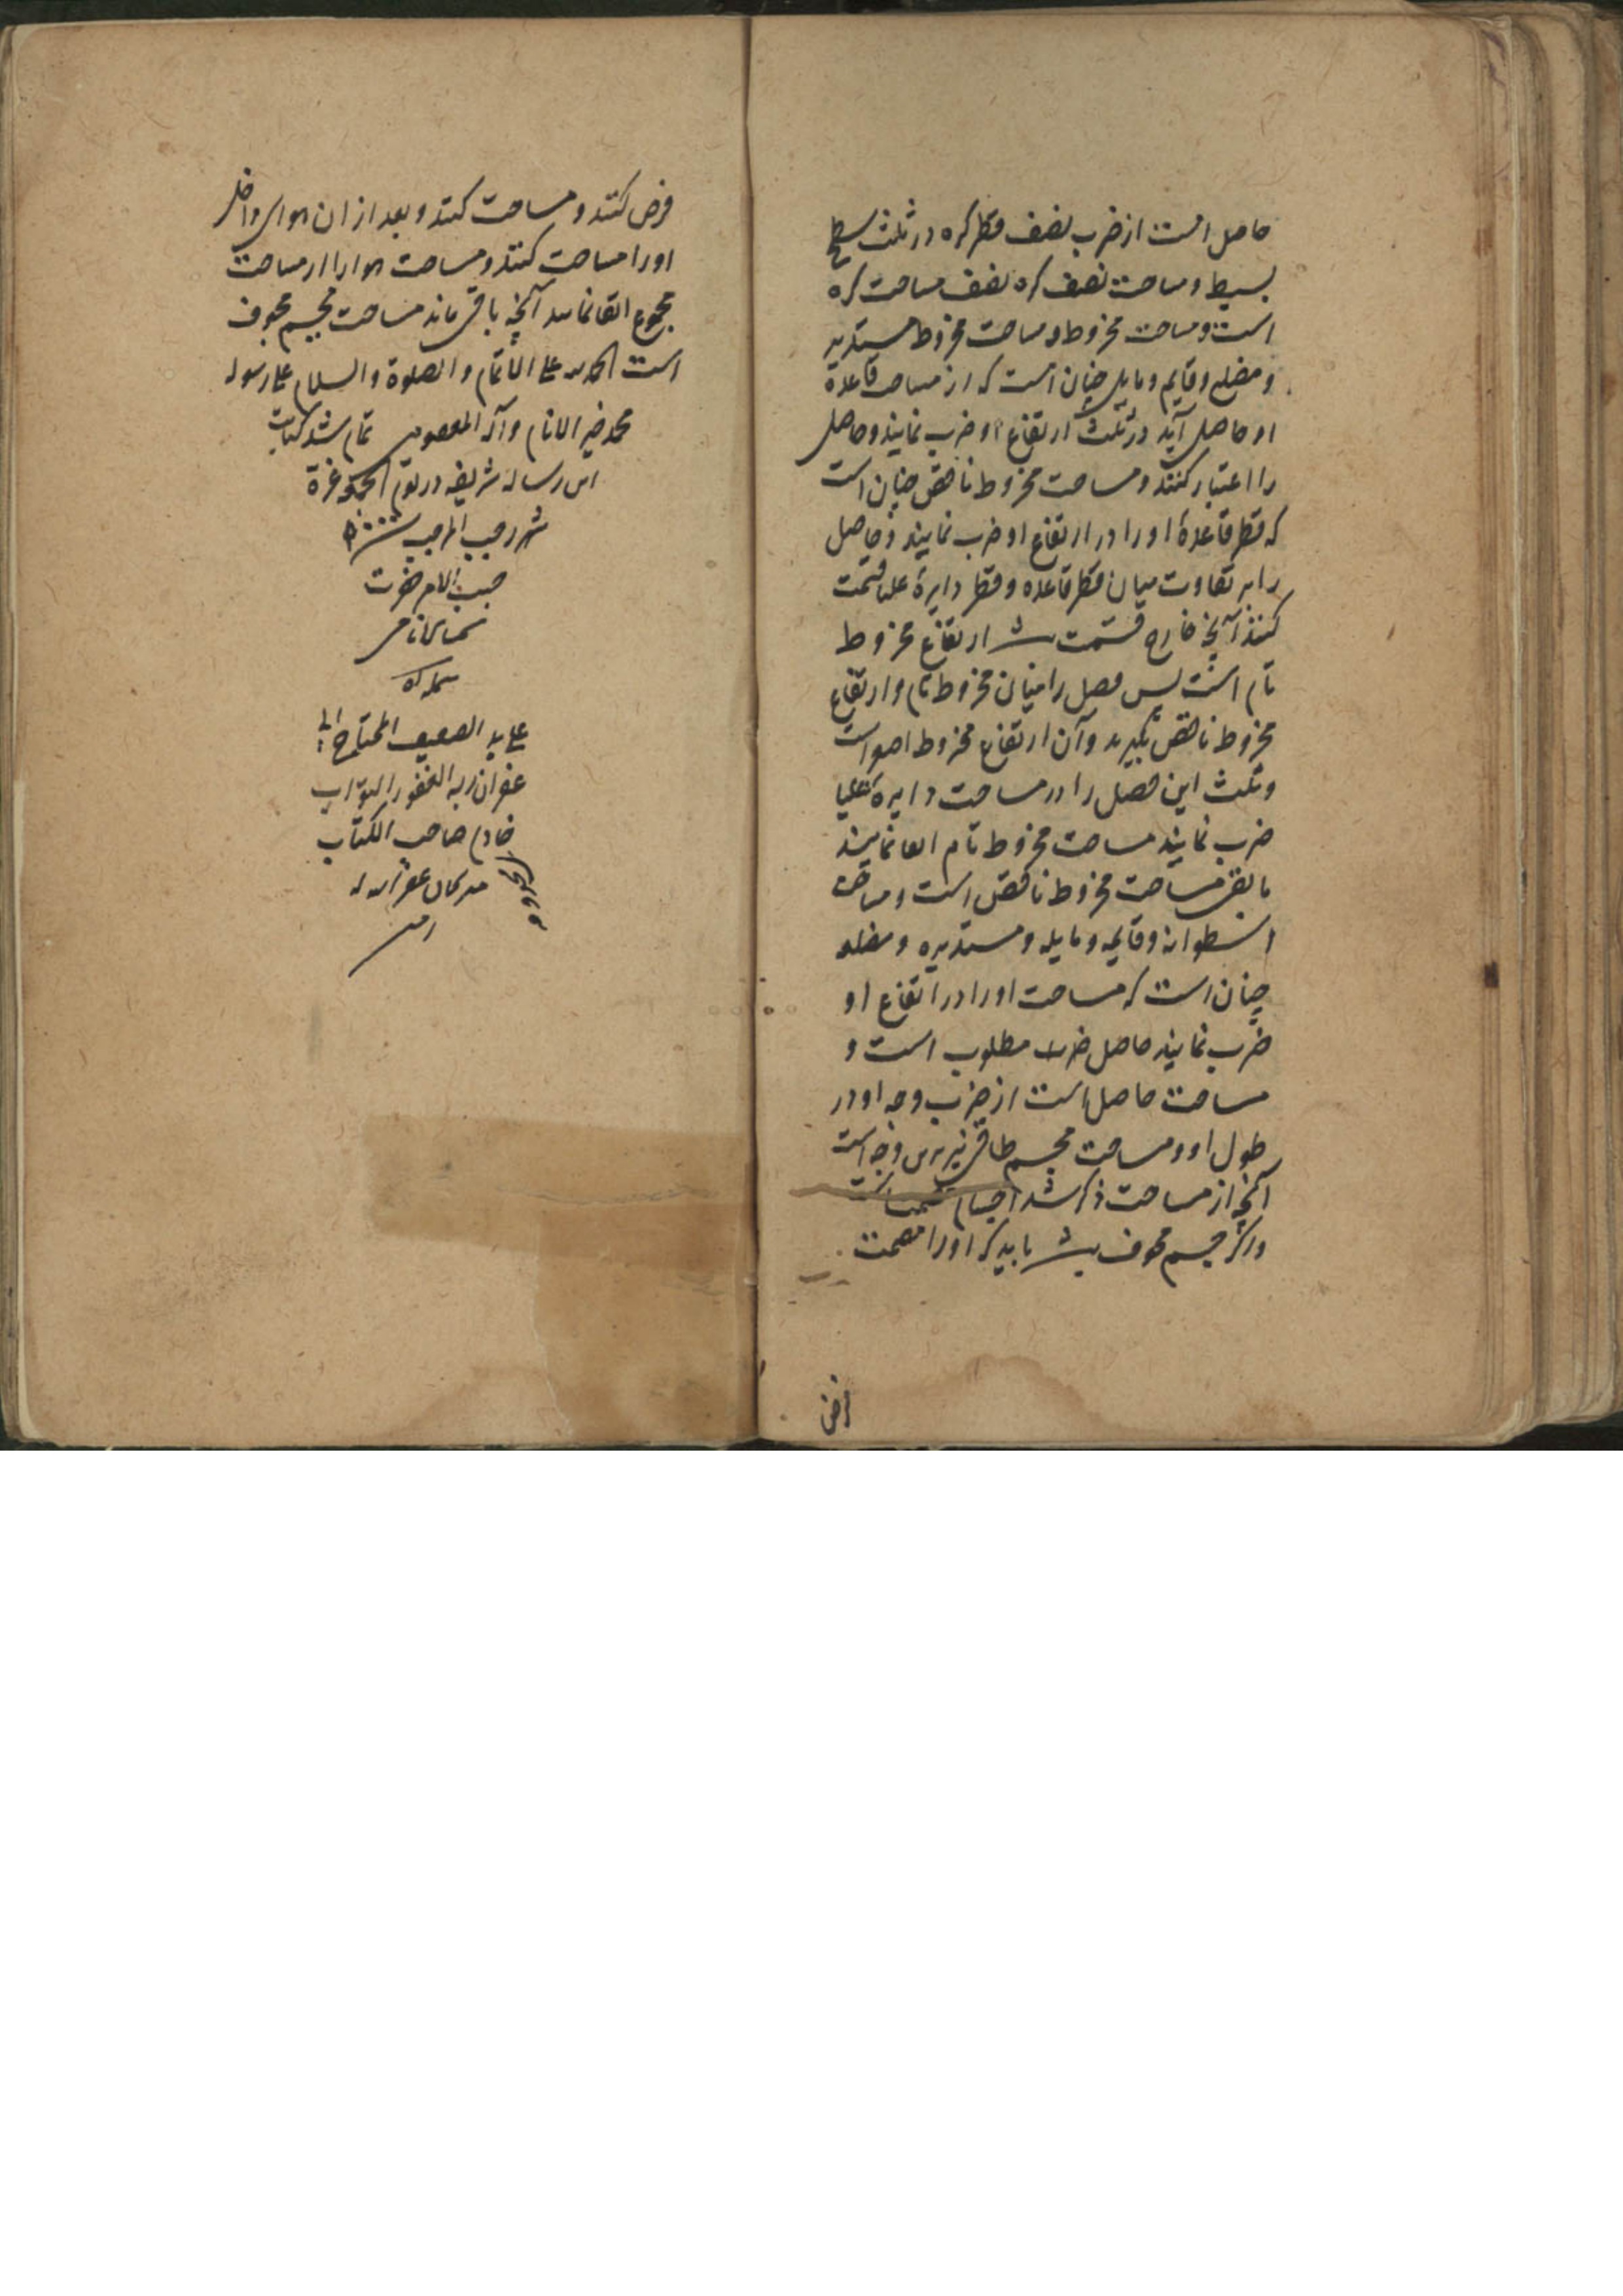 حاصل است از ضرب نصف قطر کره در ثلث سطح
بسیط و مساحت نصف کره نصف مساحت کره
است و مساحت مخروط و مساحت مخروط مستدیر
و مضلع و قایم و مایل چنان است که از مساحت قاعدهٔ
او حاصل آید در ثلث ارتفاع او ضرب نمایند و حاصل
را اعتبار کنند و مساحت مخروط ناقص چنان است
که قطر قاعدهٔ او را در ارتفاع او ضرب نمایند و حاصل
را بر تفاوت میان قطر قاعده و قطر دایرهٔ علیا قسمت
کنند آنچه خارج قسمت باشد ارتفاع مخروط
تام است پس فصل را میان مخروط تام و ارتفاع
مخروط ناقص بگیرند و آن ارتفاع مخروط اصغر است
و ثلث این فصل را در مساحت دایرهٔ علیا
ضرب نمایند مساحت مخروط تام القا نمایند
ما بقی مساحت مخروط ناقص است و مساحت
اسطوانه و قایمه و مایله و مستدیره و مضلعه
چنان است که مساحت او را در ارتفاع او
ضرب نمایند حاصل ضرب مطلوب است و
مساحت حاصل است از ضرب وجه او در
طول او و مساحت مجسم طاقی نیز برین وجه است
آنچه از مساحت ذکر شد اجسام
و اگر جسم مجوف باشد باید که او را مصمت
فرض کنند و مساحت کنند و بعد از ان هوای داخل
او را مساحت کنند و مساحت هوا را از مساحت
مجموع القا نمایند آنچه باقی ماند مساحت مجسم مجوف
است الحمد لله علی الاتمام و الصلوة و السلام علی رسوله
محمد خیر الانام و آله المعصومین تمام شد کتابت
این رساله شریفه در یوم الجمعه غرة
شهر رجب المرجب
حسب الامر حضرت
علی ید الضعیف المحتاج الی
غفران ربه الغفور التواب
خادم صاحب الکتاب